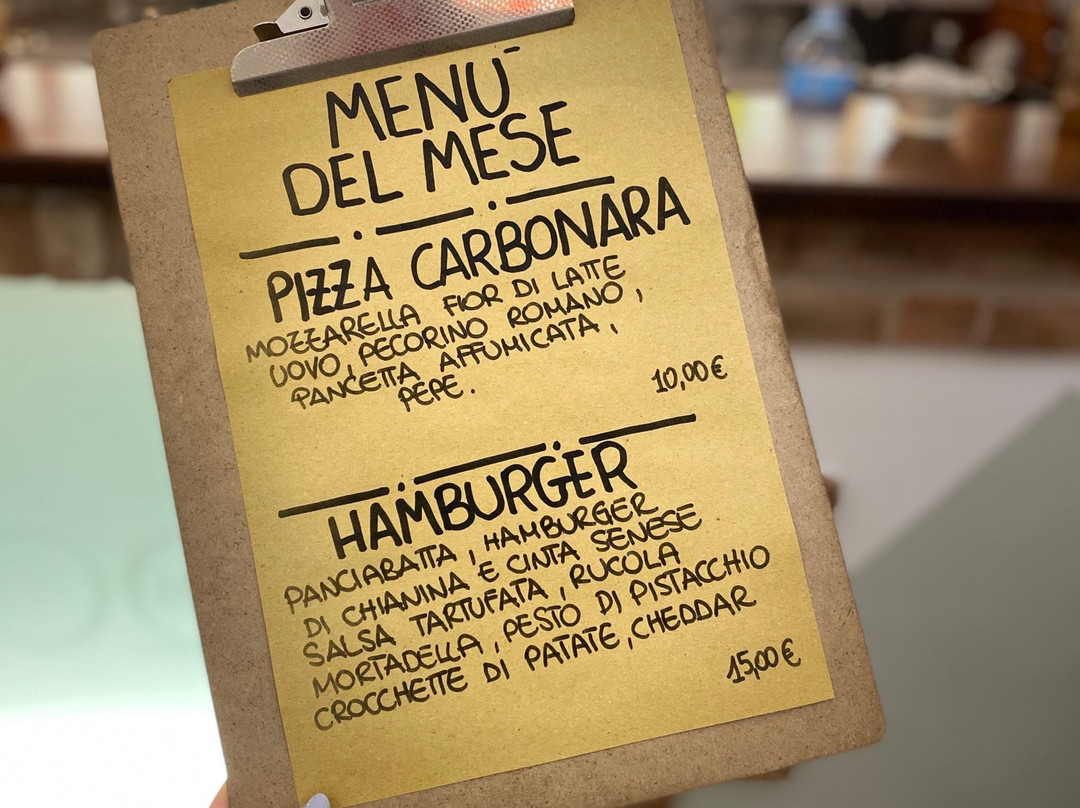 MENÙ
DEL MESE
PIZZA CARBONARA
MOZZARELLA FIOR DI LATTE
UOVO, PECORINO ROMANO,
PANCETTA AFFUMICATA,
PEPE.
10,00 €
HAMBURGER
PANCIABATTA, HAMBURGER
DI CHIANINA E CINTA SENESE
SALSA TARTUFATA, RUCOLA
MORTADELLA, PESTO DI PISTACCHIO
CROCCHETTE DI PATATE, CHEDDAR
15,00 €